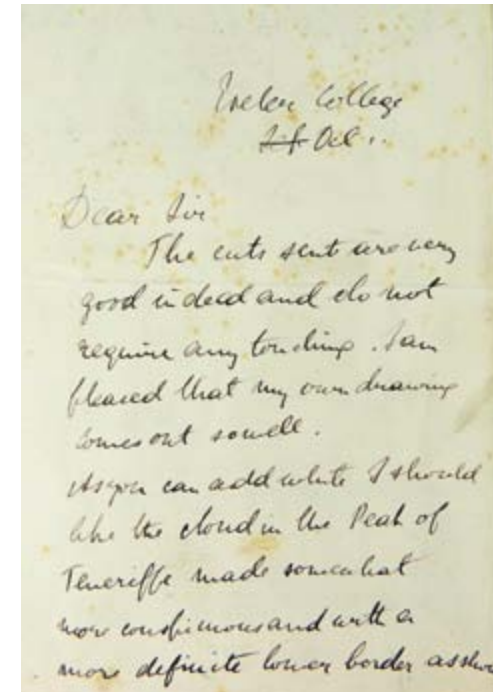 College
Oct.
Dear Sir
The cuts sent are very
good indeed and do not
require any touching. I am
pleased that my own drawing
comes out so well.
As you can add white I should
like the cloud in the Peak of
Teneriffe made somewhat
more conspicuous and with a
more definite lower border as show